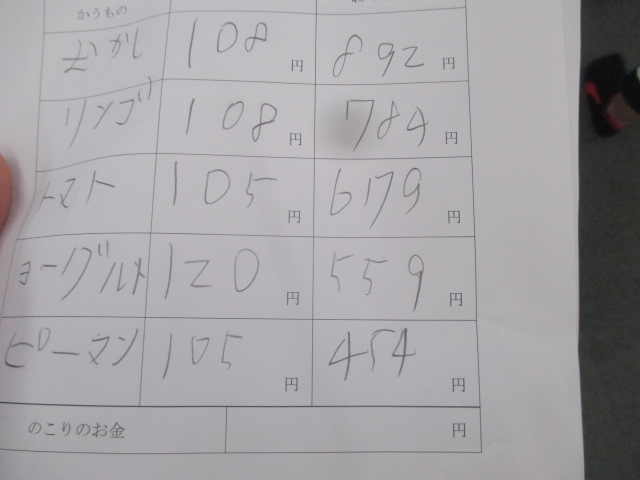 かうもの
おかし 108円 892円
リンゴ 108円 784円
トマト 105円 6179円
ヨーグルト 120円 559円
ピーマン 105円 454円
のこりのお金 円